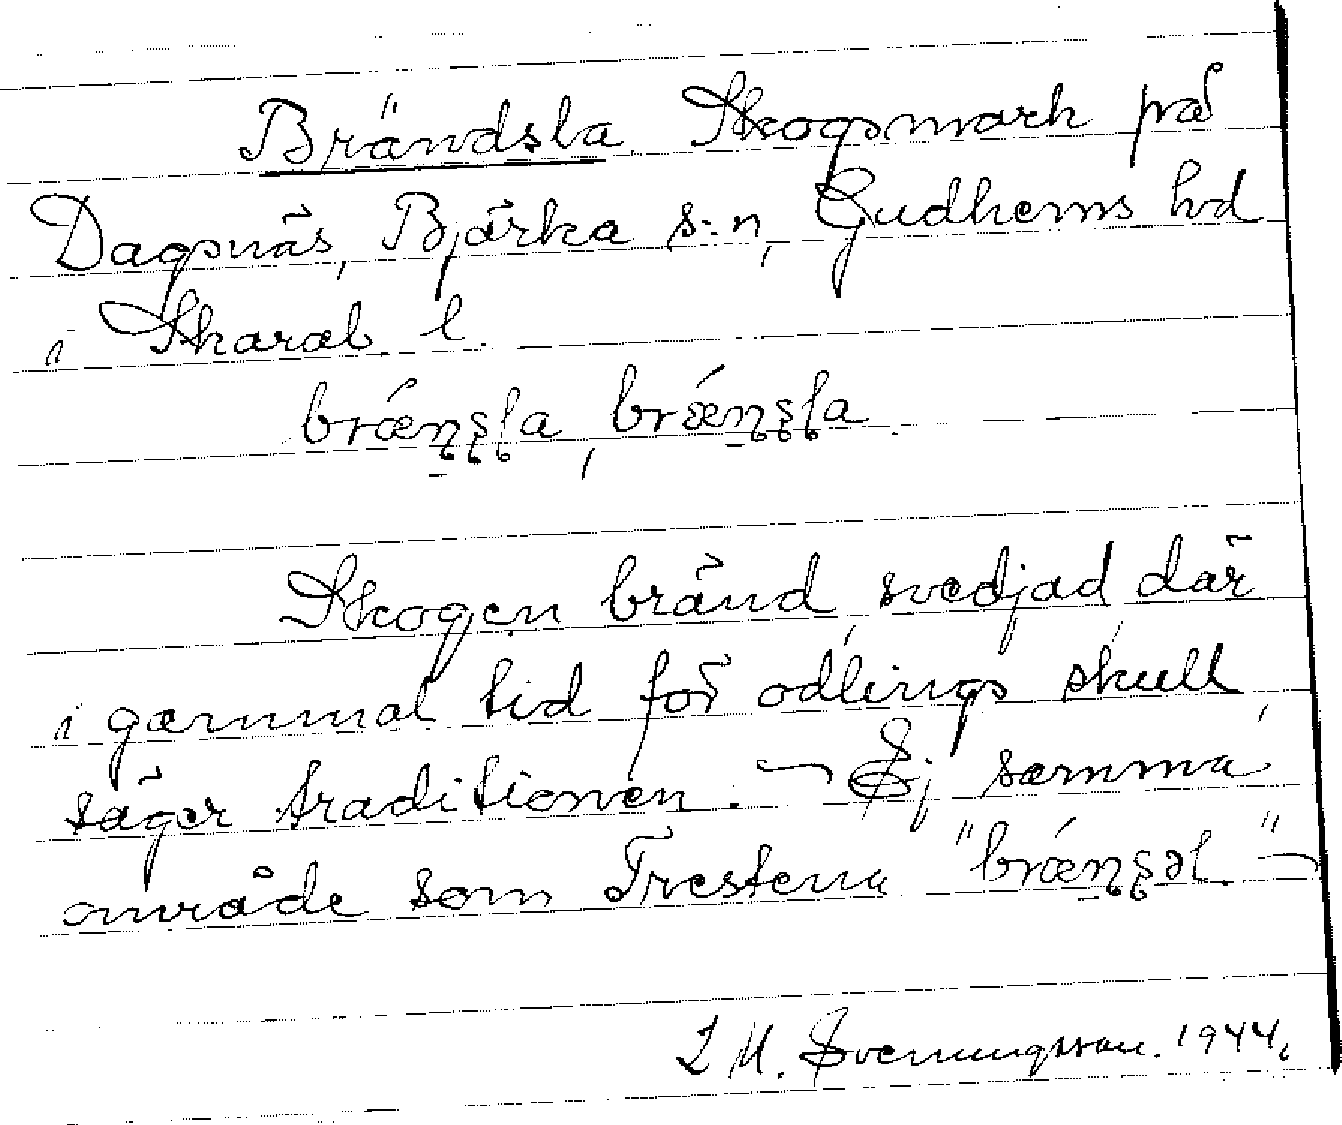 Brändsla. Skogsmark på
Dagsnäs, Bjärka s:n, Gudhems hd
i Skarab. l.
brǽnsla, brǽnsla.
Skogen bränd, svedjad där
i gammal tid för odlings skull,
säger traditionen. — Ej samma
område som Trestena "brǽnsəl" —
I M. Svenungsson. 1944.